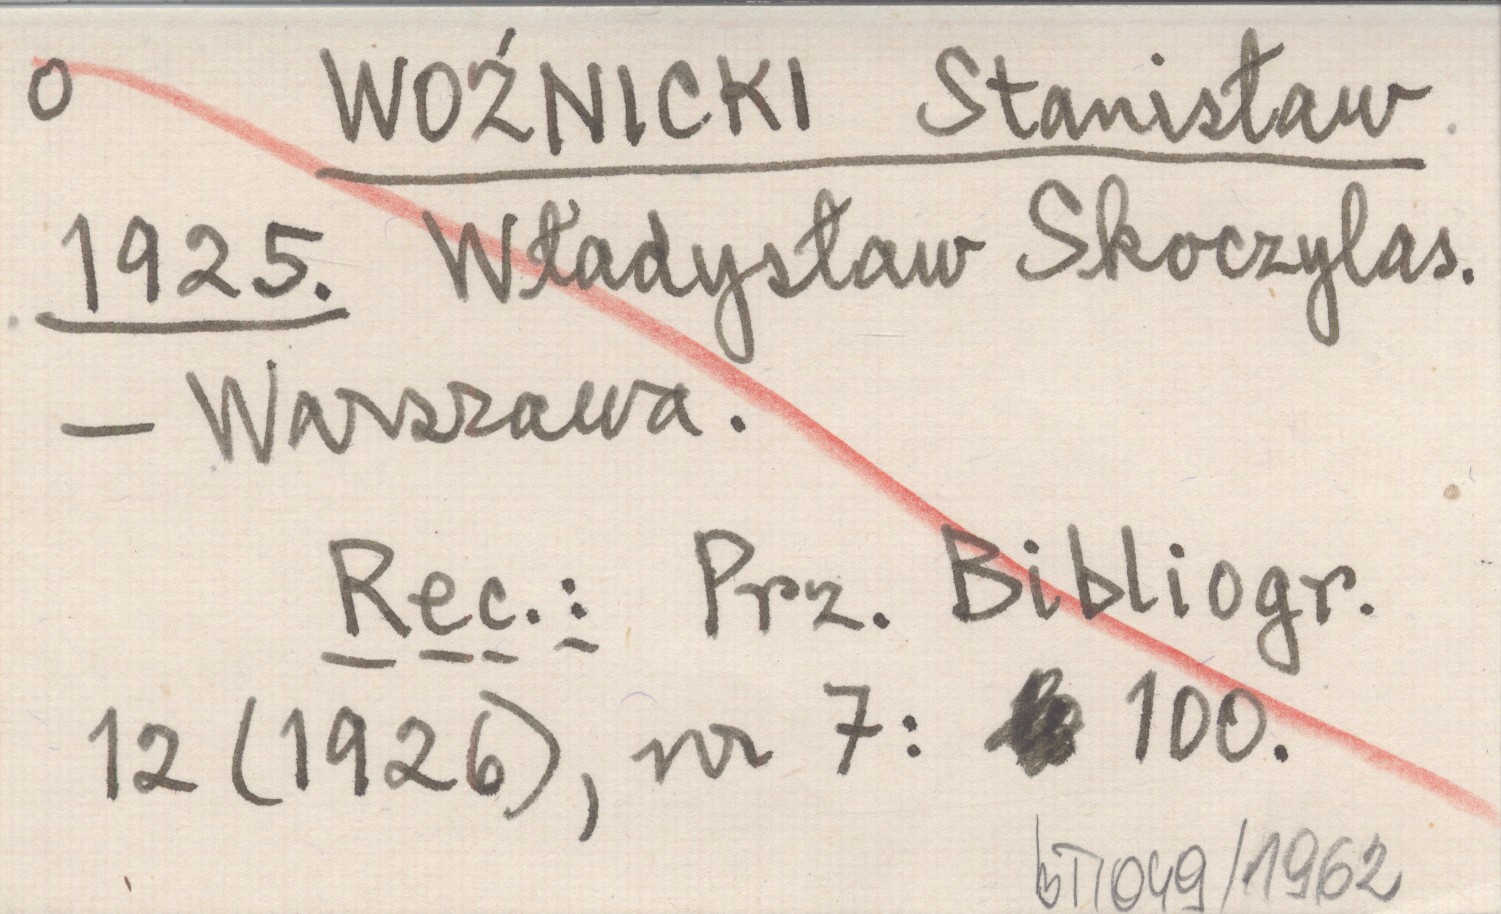 o WOŹNICKI Stanisław
1925. Władysław Skoczylas.
— Warszawa.
Rec.: Prz. Bibliogr.
12 (1926), nr 7: 100.
049/1962